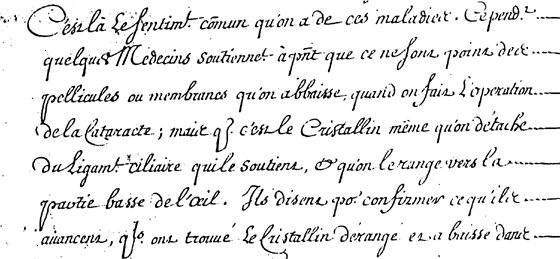 C'est là Le sentimt. cōmun qu'on a de ces maladies. Cepend.t
quelques Medecins soutiennet. à pn̄t que ce ne sont point des
pellicules ou membranes qu'on abbaisse, quand on fait L'operation
de la Cataracte; mais q. c'est le Cristallin même qu'on détache
du Ligamt. ciliaire qui le soutient, & qu'on le range vers la
partie basse de l'œil. Ils disent po.r confirmer ce qu'ils
avancent, q.ls ont trouvé Le Cristallin dérangé et abaissé dans